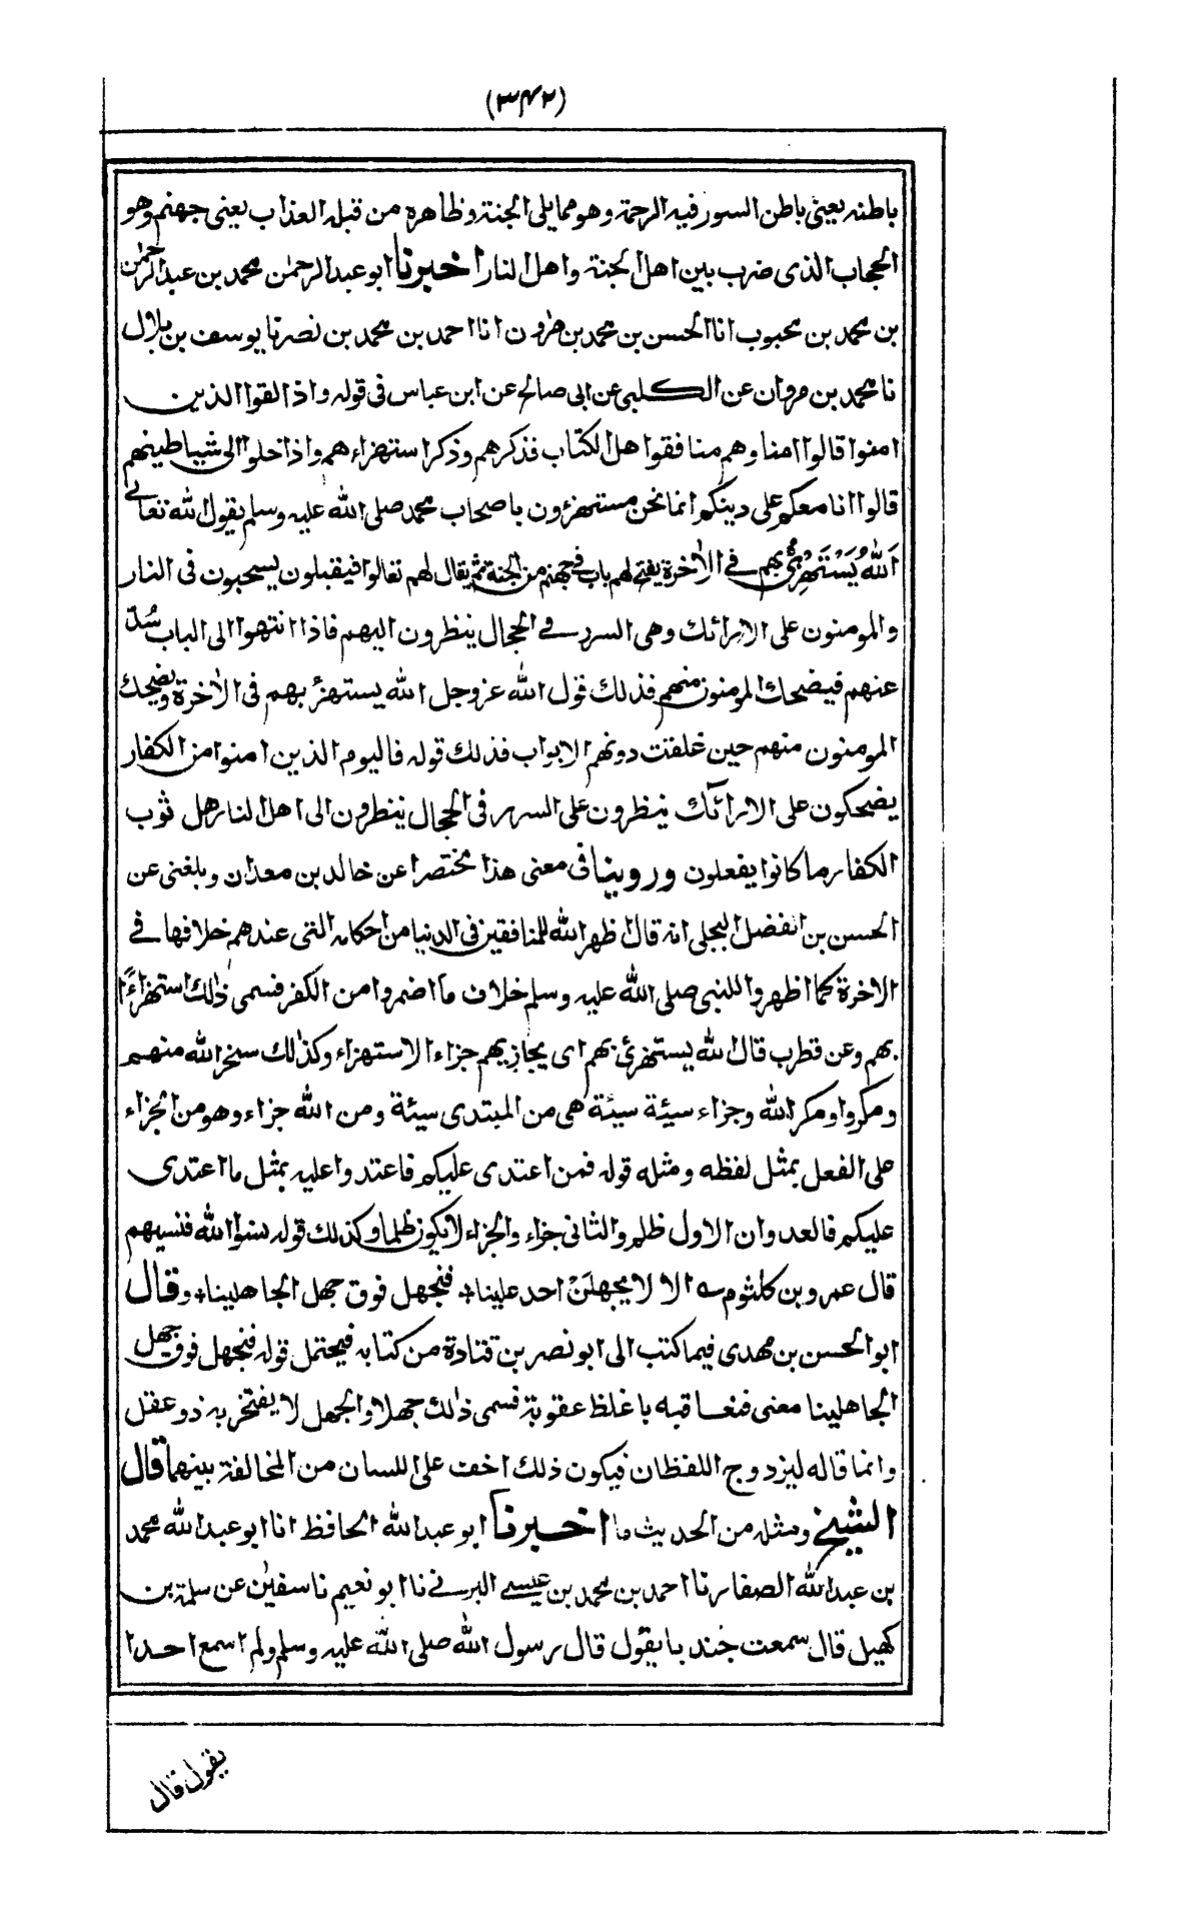 (٣٤٢)
باطنه يعنى باطن السور فيه الرحمة وهو مما يلى الجنة وظاهره من قبله العذاب يعنى جهنم وهو
الحجاب الذى ضرب بين اهل الجنة واهل النار اخبرنا ابو عبد الرحمٰن محمد بن عبد الرحمٰن
بن محمد بن محبوب انا الحسن بن محمد بن هٰرون انا احمد بن محمد بن نصر نا يوسف بن بلال
نا محمد بن مروان عن الكلبى عن ابى صالح عن ابن عباس فى قوله واذا لقوا الذين
امنوا قالوا امنا وهم منافقوا هل الكتاب فذكرهم وذكر استهزاءهم واذا خلوا الى شياطينهم
قالوا انا معكم على دينكم انما نحن مستهزؤن باصحاب محمد صلى الله عليه وسلم يقول الله تعالى
اَللهُ يَسْتَهْزِئُ بهم فى الاٰخرة يفتح لهم باب فى جهنم من الجنة ثم يقال لهم تعالوا فيقبلون يسحبون فى النار
والمومنون على الارائك وهى السرر فى الحجال ينظرون اليهم فاذا انتهوا الى الباب سُدّ
عنهم فيضحك المومنون منهم فذلك قول الله عز وجل الله يستهزئ بهم فى الاٰخرة ويضحك
المومنون منهم حين غلقت دونهم الابواب فذلك قوله فاليوم الذين امنوا من الكفار
يضحكون على الارائك ينظرون على السرر فى الحجال ينظرون الى اهل النار هل ثوب
الكفار ما كانوا يفعلون وروينا فى معنى هذا مختصرا عن خالد بن معدان وبلغنى عن
الحسن بن الفضل البجلى انه قال اظهر الله للمنافقين فى الدنيا من احكامه التى عندهم خلافها فى
الاخرة كما اظهروا للنبى صلى الله عليه وسلم خلاف ما اضمروا من الكفر فسمى ذٰلك استهزاءًا
بهم وعن قطرب قال الله يستهزئ بهم اى يجازيهم جزاء الاستهزاء وكذٰلك سخر الله منهم
ومكروا ومكر الله وجزاء سيئة سيئة هى من المبتدى سيئة ومن الله جزاء وهو من الجزاء
على الفعل بمثل لفظه ومثله قوله فمن اعتدى عليكم فاعتدوا عليه بمثل ما اعتدى
عليكم فالعدوان الاول ظلم والثانى جزاء والجزاء لا يكون ظلما وكذلك قوله نسوا الله فنسيهم
قال عمرو بن كلثوم ؎ الا لا يجهلَنْ احد علينا * فنجهل فوق جهل الجاهلينا * وقال
ابو الحسن بن مهدى فيما كتب الى ابو نصر بن قتادة من كتابه فيحتمل قوله فنجهل فوق جهل
الجاهلينا معنى فنعاقبه باغلظ عقوبة فسمى ذٰلك جهلا والجهل لا يفتخر به ذو عقل
وانما قاله ليزدوج اللفظان فيكون ذلك اخف على اللسان من المخالفة بينهما قال
الشيخ ومثله من الحديث ما اخبرنا ابو عبد الله الحافظ انا ابو عبد الله محمد
بن عبد الله الصفار نا احمد بن محمد بن عيسى البرتى نا ابو نعيم نا سفيٰن عن سلمة بن
كهيل قال سمعت جندبا يقول قال رسول الله صلى الله عليه وسلم ولم اسمع احدا
يقول قال